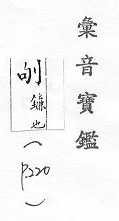 彙音寶鑑
鎌也
(P.220)